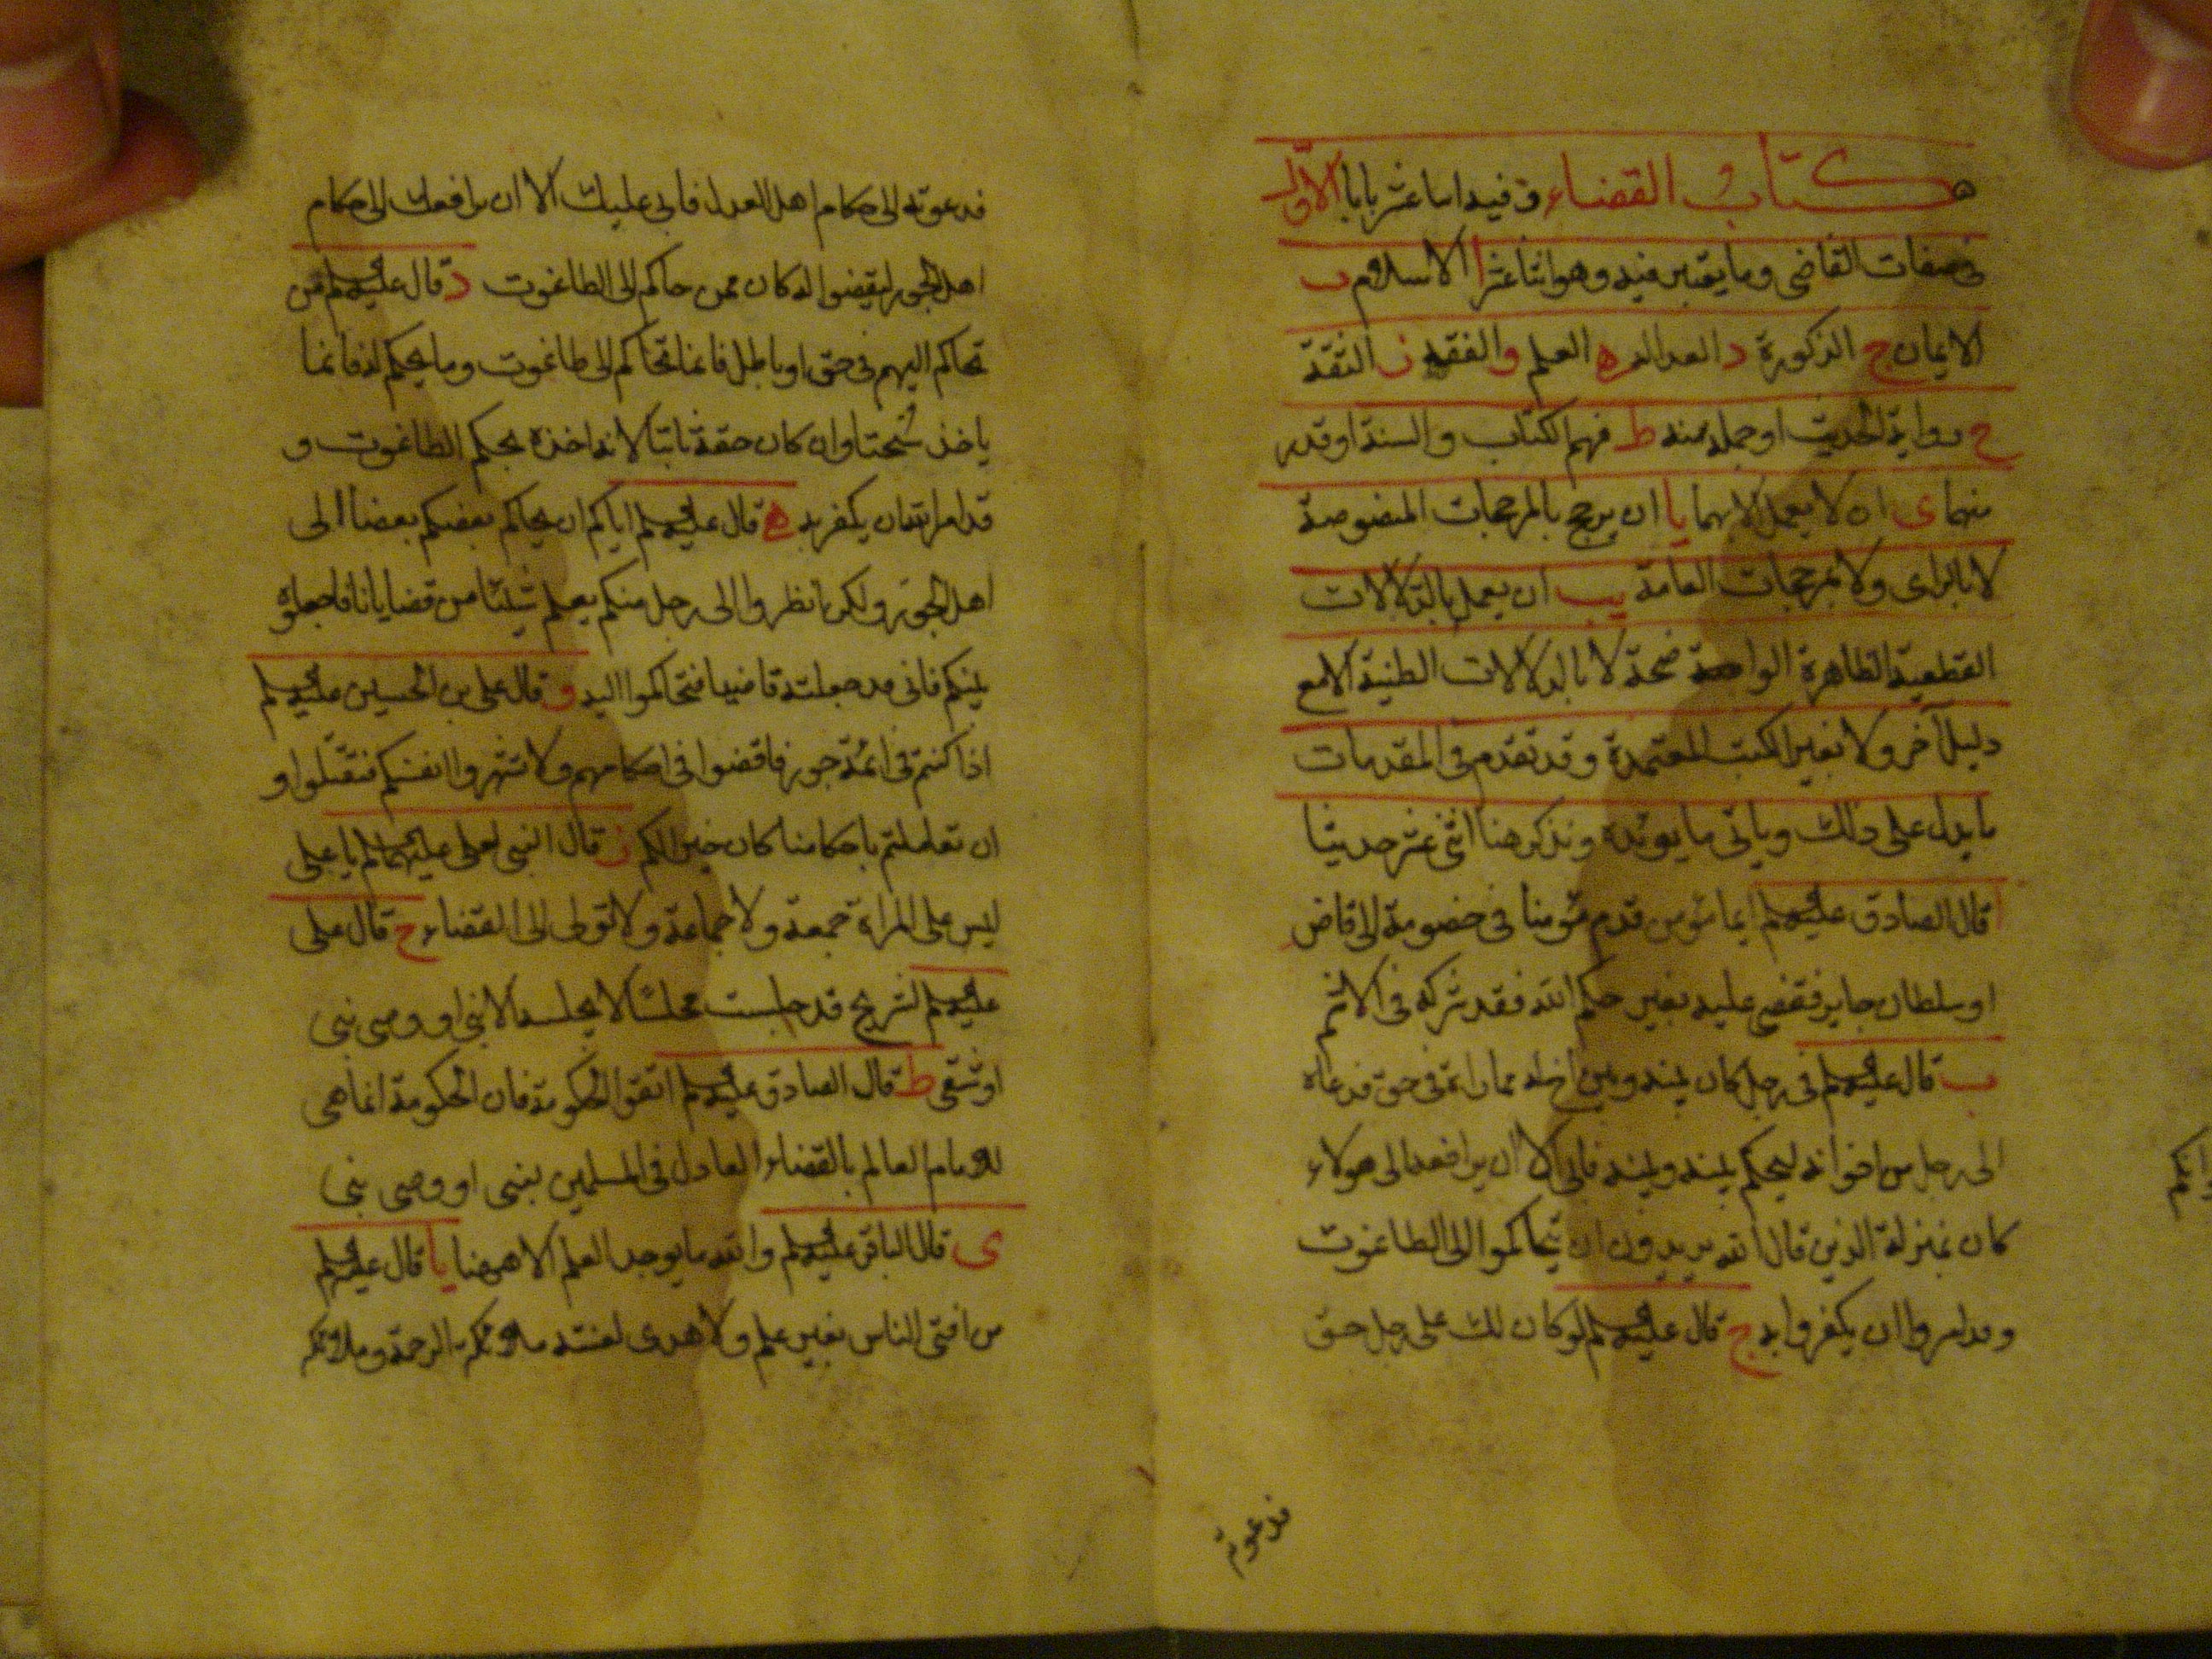 كتاب القضاء وفيه اثنا عشر بابا الاول
في صفات القاضي وما يعتبر فيه وهو اثنا عشر ا الاسلام ب
الايمان ج الذكورة د العدالة ه العلم و الفقه ز الثقة
ح رواية الحديث او جملة منه ط فهم الكتاب والسنة او قدر
منهما ى ان لا يعمل الا بهما يا ان يرجح بالمرجحات المنصوصة
لا بالراى ولا بمرجحات العامة يب ان يعمل بالدلالات
القطعية الظاهرة الواضحة لا بالدلالات الظنية الا مع
دليل آخر ولا بغير الكتب المعتمدة وقد تقدم في المقدمات
ما يدل على ذلك وياتي ما يؤيده ونذكر هنا اثنى عشر حديثا
ا قال الصادق عليه السلم ايما مؤمن قدم مؤمنا في خصومة الى قاض
او سلطان جاير فقضى عليه بغير حكم الله فقد شركه في الاثم
ب قال عليه السلم في رجل كان بينه وبين اخ له مماراة في حق فدعاه
الى رجل من اخوانه ليحكم بينه وبينه فابى الا ان يرافعه الى هولاء
كان بمنزلة الذين قال الله يريدون ان يتحاكموا الى الطاغوت
وقد امروا ان يكفروا به ج قال عليه السلم لو كان لك على رجل حق
فدعوته
فدعوته الى حكام اهل العدل فابى عليك الا ان يرافعك الى حكام
اهل الجور ليقضوا له كان ممن حاكم الى الطاغوت د قال عليه السلم من
تحاكم اليهم في حق او باطل فانما تحاكم الى طاغوت وما يحكم له فانما
ياخذ سُحتا وان كان حقه ثابتا لانه اخذه بحكم الطاغوت و
قد امر الله ان يكفر به ه قال عليه السلم اياكم ان يحاكم بعضكم بعضا الى
اهل الجور ولكن انظروا الى رجل منكم يعلم شيئا من قضايانا فاجعلوه
بينكم فاني قد جعلته قاضيا فتحاكموا اليه و قال على بن الحسين عليه السلم
اذا كنتم في ائمة جور فاقضوا في احكامهم ولا تشهروا انفسكم فتقتلوا و
ان تعاملتم باحكامنا كان خيرا لكم ز قال النبى لعلى عليهما السلم يا على
ليس على المراة جمعة ولا جماعة ولا تولى القضاء ح قال على
عليه السلم لشريح قد جلست مجلسًا لا يجلسه الا نبى او وصى نبى
او شقى ط قال الصادق عليه السلم اتقوا الحكومة فان الحكومة انما هي
للامام العالم بالقضاء العادل في المسلمين لنبى او وصى نبى
ى قال الباقر عليه السلم والله ما يوجد العلم الا هيهنا يا قال عليه السلم
من افتى الناس بغير علم ولا هدى لعنته ملائكة الرحمة وملائكة